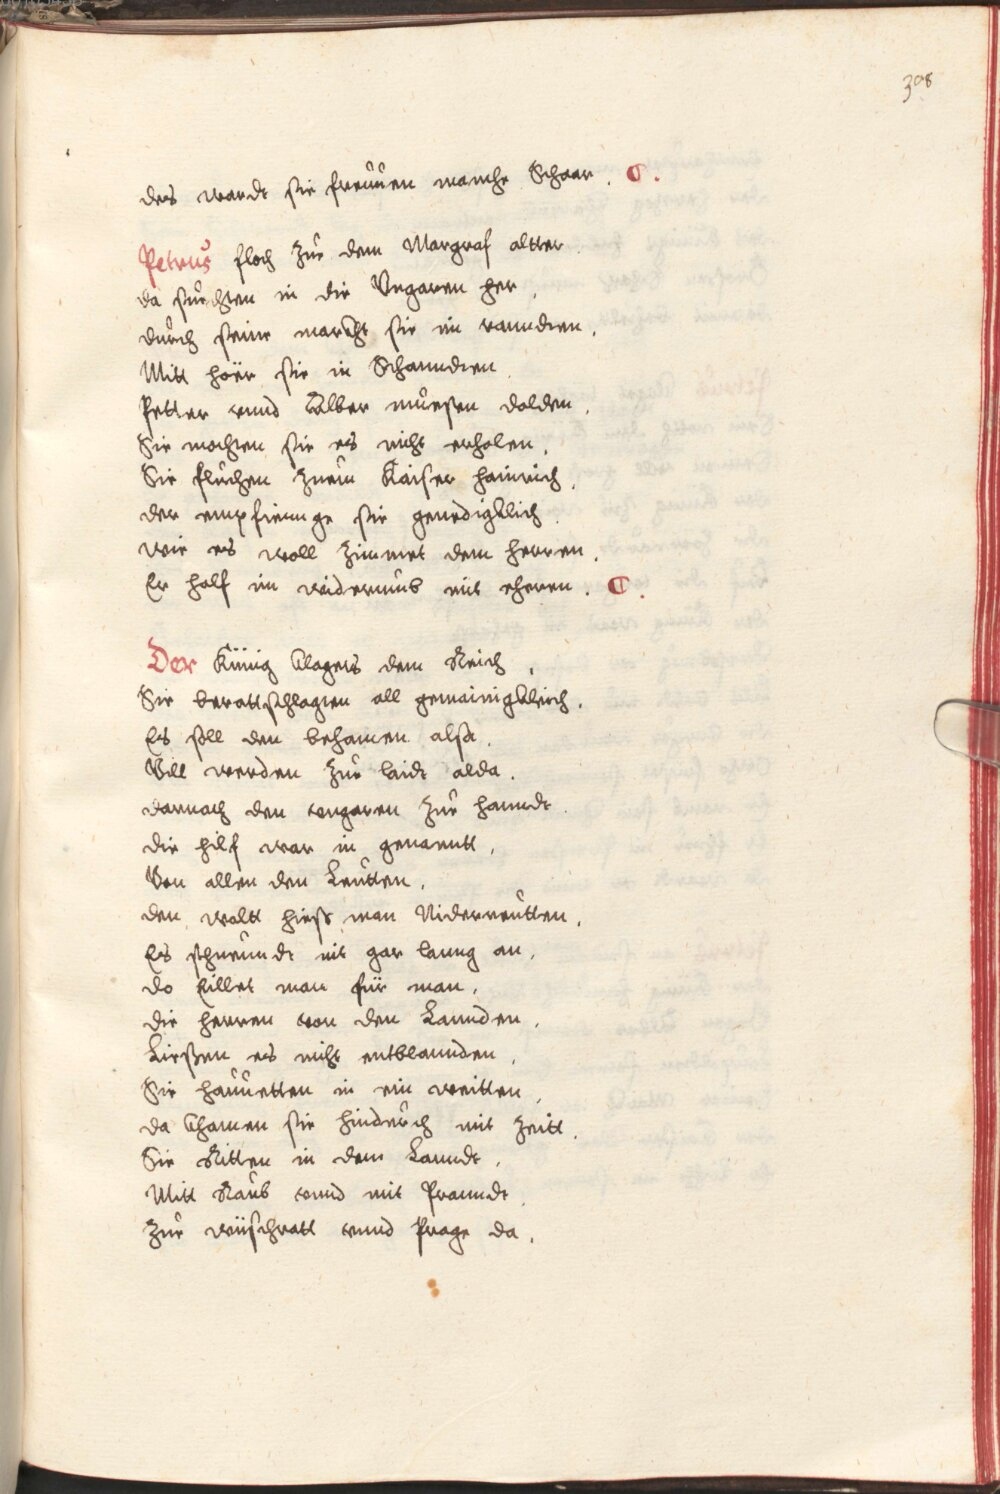 308
des wardt sie freuen manche Schaar .
Petrus floch zue dem Margraf altter .
da suechten in die Vngaren her .
durch seine marcht sie im ranndten .
Mitt hoër sie in Schanndten
Petter vnnd Alber muesen dolden .
Sie mochten sie es nicht erholen .
Sie fluchen zuem Kaiser hainrich .
der empfiennge sie genedigklich
wie es woll zimmet dem herren .
Er half im widerumb mit eheren .
Der Künig klagets dem Reich .
Sie berattschlagten all gemainigkleich .
Es soll den behamen alsa .
Vill werden zue laidt alda .
darnach den vngaren zue hanndt .
die hilf war in genanntt .
Von allen den Leutten .
den waltt hiess man Niderreutten .
Es scheündt nit gar lanng an .
do Eillet man für man .
die herren von den Lannden .
Liessen es nicht entblannden .
Sie hauuetten in ein weitten .
da khamen sie hinderch mit zeitt .
Sie Ritten in dem Lanndt .
Mitt Raub vnnd mit Pranndt .
zue wüschratt vnnd Prage da .